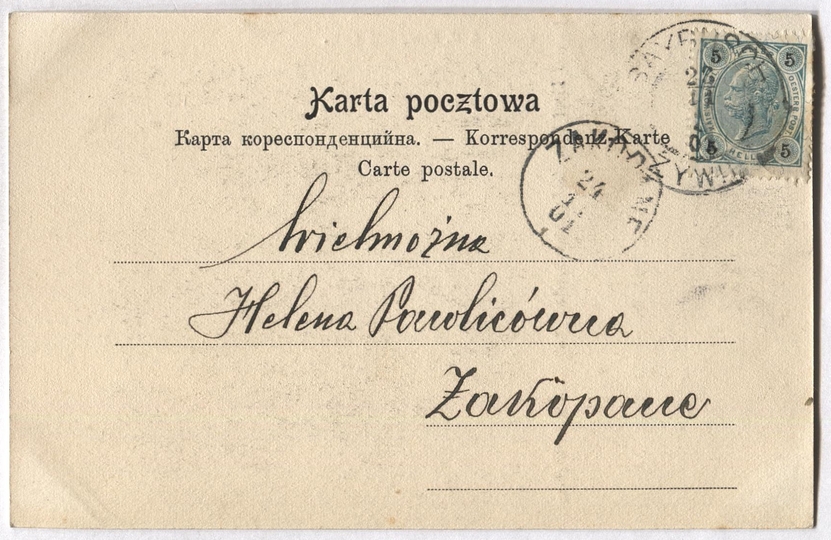 Karta pocztowa
Карта кореспонденцийна. — Korrespondenz-Karte
Carte postale.
Wielmożna
Helena Pawlicówna
Zakopane
ZAKOPANE
24
01
5 5
5 5